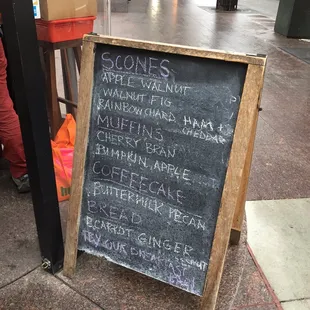 SCONES
APPLE WALNUT
WALNUT FIG
RAINBOW CHARD HAM + CHEDDAR
MUFFINS
CHERRY BRAN
PUMPKIN APPLE
COFFEECAKE
BUTTERMILK PECAN
BREAD
CARROT GINGER
TRY OUR